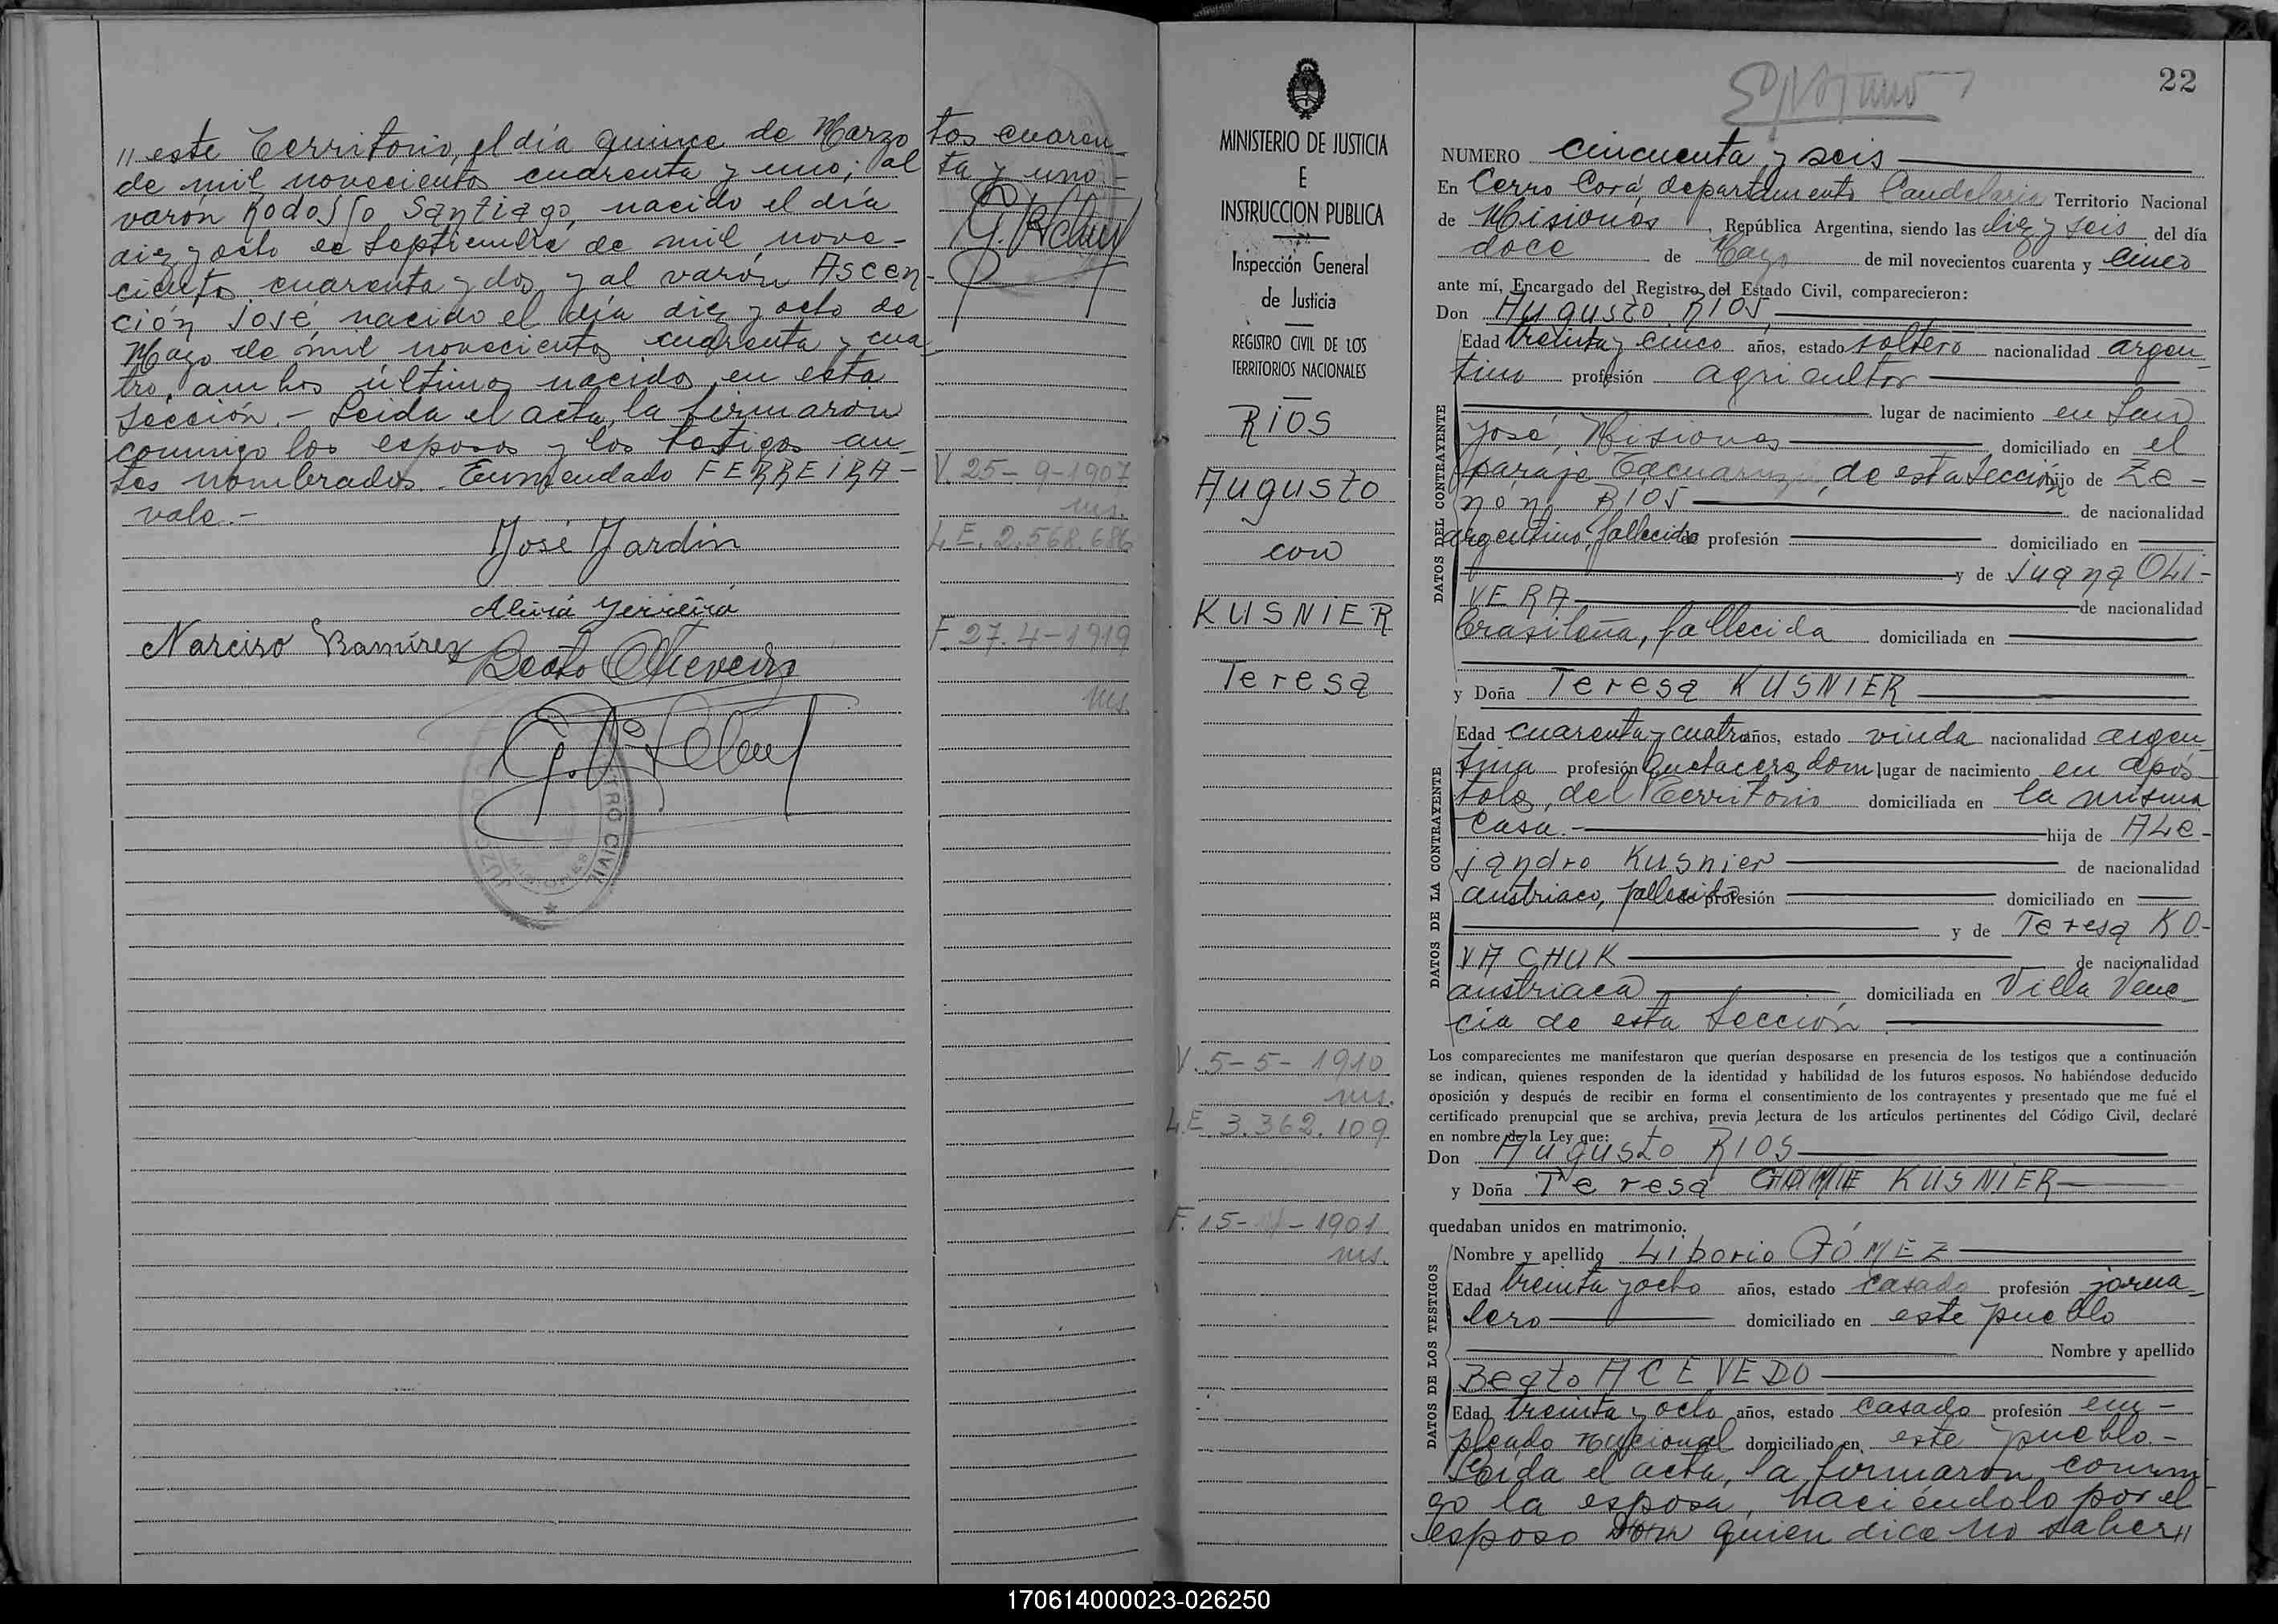 // este Territorio, el día quince de Marzo
de mil novecientos cuarenta y uno; al
varón Rodolfo Santiago, nacido el día
diez y ocho de Septiembre de mil nove-
cientos cuarenta y dos, y al varón Ascen-
ción José, nacido el día diez y ocho de
Mayo de mil novecientos cuarenta y cua
tro, ambos últimos nacidos en esta
Sección.- Leida el acta, la firmaron
conmigo los esposos y los testigos an-
tes nombrados. Enmendado FERREIRA-
vale.-
José Jardin
Alivia Ferreira
Narciso Ramírez
Beato
REGISTRO CIVIL
MISIONES
tos cuaren-
ta y uno-
V. 25-9-1907
ms.
L.E. 2.568.686
F. 27-4-1919
ms.
MINISTERIO DE JUSTICIA
E
INSTRUCCION PUBLICA
Inspección General
de Justicia
REGISTRO CIVIL DE LOS
TERRITORIOS NACIONALES
RIOS
Augusto
con
KUSNIER
Teresa
V. 5-5-1910
ms.
L.E. 3.362.109
F. 15- -1901
ms.
22
NUMERO cincuenta y seis
En Cerro Corá, departamento Candelaria Territorio Nacional
de Misiones, República Argentina, siendo las diez y seis del día
doce de Mayo de mil novecientos cuarenta y cinco
ante mí, Encargado del Registro del Estado Civil, comparecieron:
Don Augusto RIOS
DATOS DEL CONTRAYENTE
Edad treinta y cinco años, estado soltero nacionalidad argen-
tino profesión agricultor
lugar de nacimiento en San
José, Misiones domiciliado en el
paraje Tacuaruzú, de esta Sección hijo de Ze-
non RIOS de nacionalidad
argentino, fallecido profesión domiciliado en
y de Juana OLI-
VERA de nacionalidad
brasileña, fallecida domiciliada en
y Doña Teresa KUSNIER
DATOS DE LA CONTRAYENTE
Edad cuarenta y cuatro años, estado viuda nacionalidad argen-
tina profesión quehaceres dom lugar de nacimiento en Após-
toles, del Territorio domiciliada en la misma
casa.- hija de ALe-
jandro Kusnier de nacionalidad
austriaco, fallecido profesión domiciliado en
y de Teresa KO-
VACHUK de nacionalidad
austriaca domiciliada en Villa Vene
cia de esta Sección
Los comparecientes me manifestaron que querían desposarse en presencia de los testigos que a continuación
se indican, quienes responden de la identidad y habilidad de los futuros esposos. No habiéndose deducido
oposición y después de recibir en forma el consentimiento de los contrayentes y presentado que me fué el
certificado prenupcial que se archiva, previa lectura de los artículos pertinentes del Código Civil, declaré
en nombre de la Ley que:
Don Augusto RIOS
y Doña Teresa KUSNIER
quedaban unidos en matrimonio.
DATOS DE LOS TESTIGOS
Nombre y apellido Liborio GÓMEZ
Edad treinta y ocho años, estado casado profesión jorna-
lero domiciliado en este pueblo
Nombre y apellido
Beato ACEVEDO
Edad treinta y ocho años, estado casado profesión em-
pleado nacional domiciliado en este pueblo.-
Leida el acta, la firmaron conmi
go la esposa, haciéndolo por el
esposo quien dice no saber //
170614000023-026250